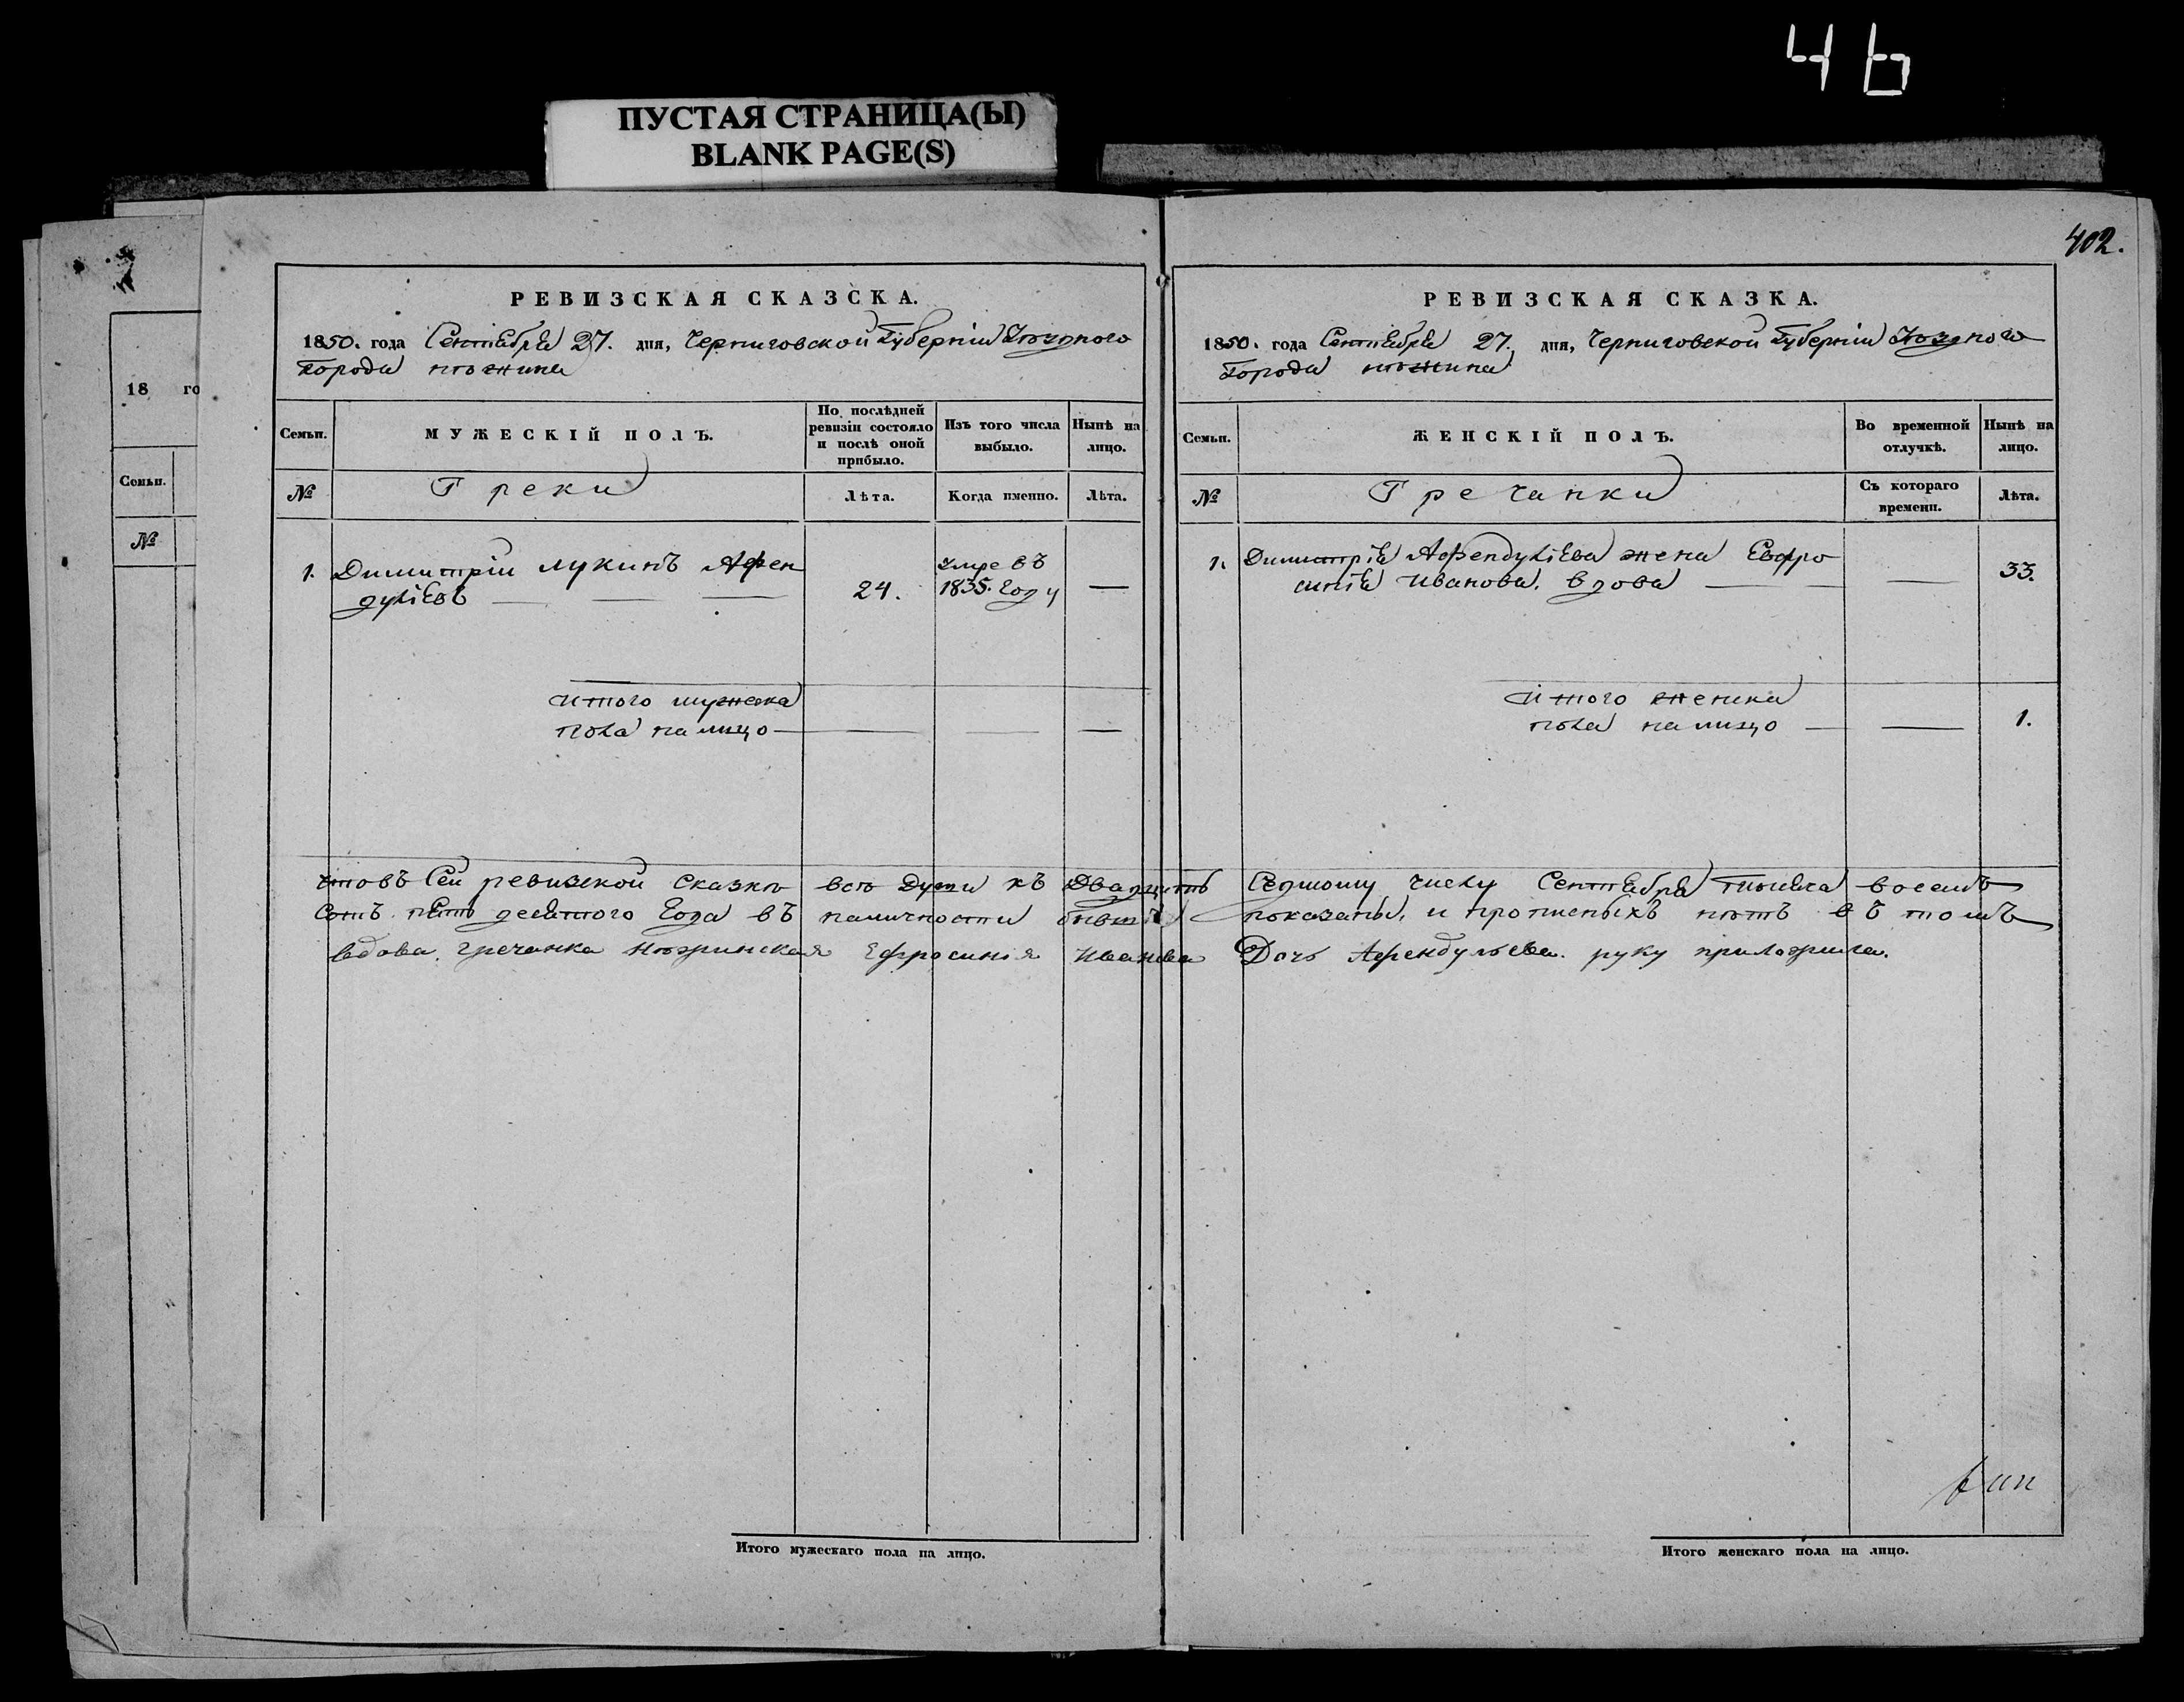 4 b
ПУСТАЯ СТРАНИЦА(Ы)
BLANK PAGE(S)
402.
18 го
Семьи.
№
РЕВИЗСКАЯ СКАЗСКА.
1850. года Сентября 27. дня, Черниговской Губерніи Уѣзднаго
Города Нѣжина
Семьи.
МУЖЕСКІЙ ПОЛЪ.
По послѣдней ревизіи состояло и послѣ оной прибыло.
Изъ того числа выбыло.
Нынѣ на лицо.
№
Греки
Лѣта.
Когда именно.
Лѣта.
1. Димитрій Лукинъ Афен
дуліевъ
24.
умре въ
1835. году
—
Итого мужеска
пола на лицо — — — —
РЕВИЗСКАЯ СКАЗКА.
1850. года Сентября 27. дня, Черниговской Губерніи Уѣзднаго
Города Нѣжина
Семьи.
ЖЕНСКІЙ ПОЛЪ.
Во временной отлучкѣ.
Нынѣ на лицо.
№
Гречанки
Съ котораго времени.
Лѣта.
1. Димитрія Афендуліева жена Евфро
синія Иванова. вдова — — 33.
Итого женска
пола на лицо — — 1.
Что въ сей ревизской сказкѣ всѣ души къ двадцать седмому числу Сентября тысяча восемь
сотъ пять десятого года въ наличности бывшія показаны, и прописныхъ нѣтъ въ томъ
вдова. гречанка Нѣжинская Ефросинія Иванова Дочь Афендульева. руку приложила.
Итого мужескаго пола на лицо.
Итого женскаго пола на лицо.